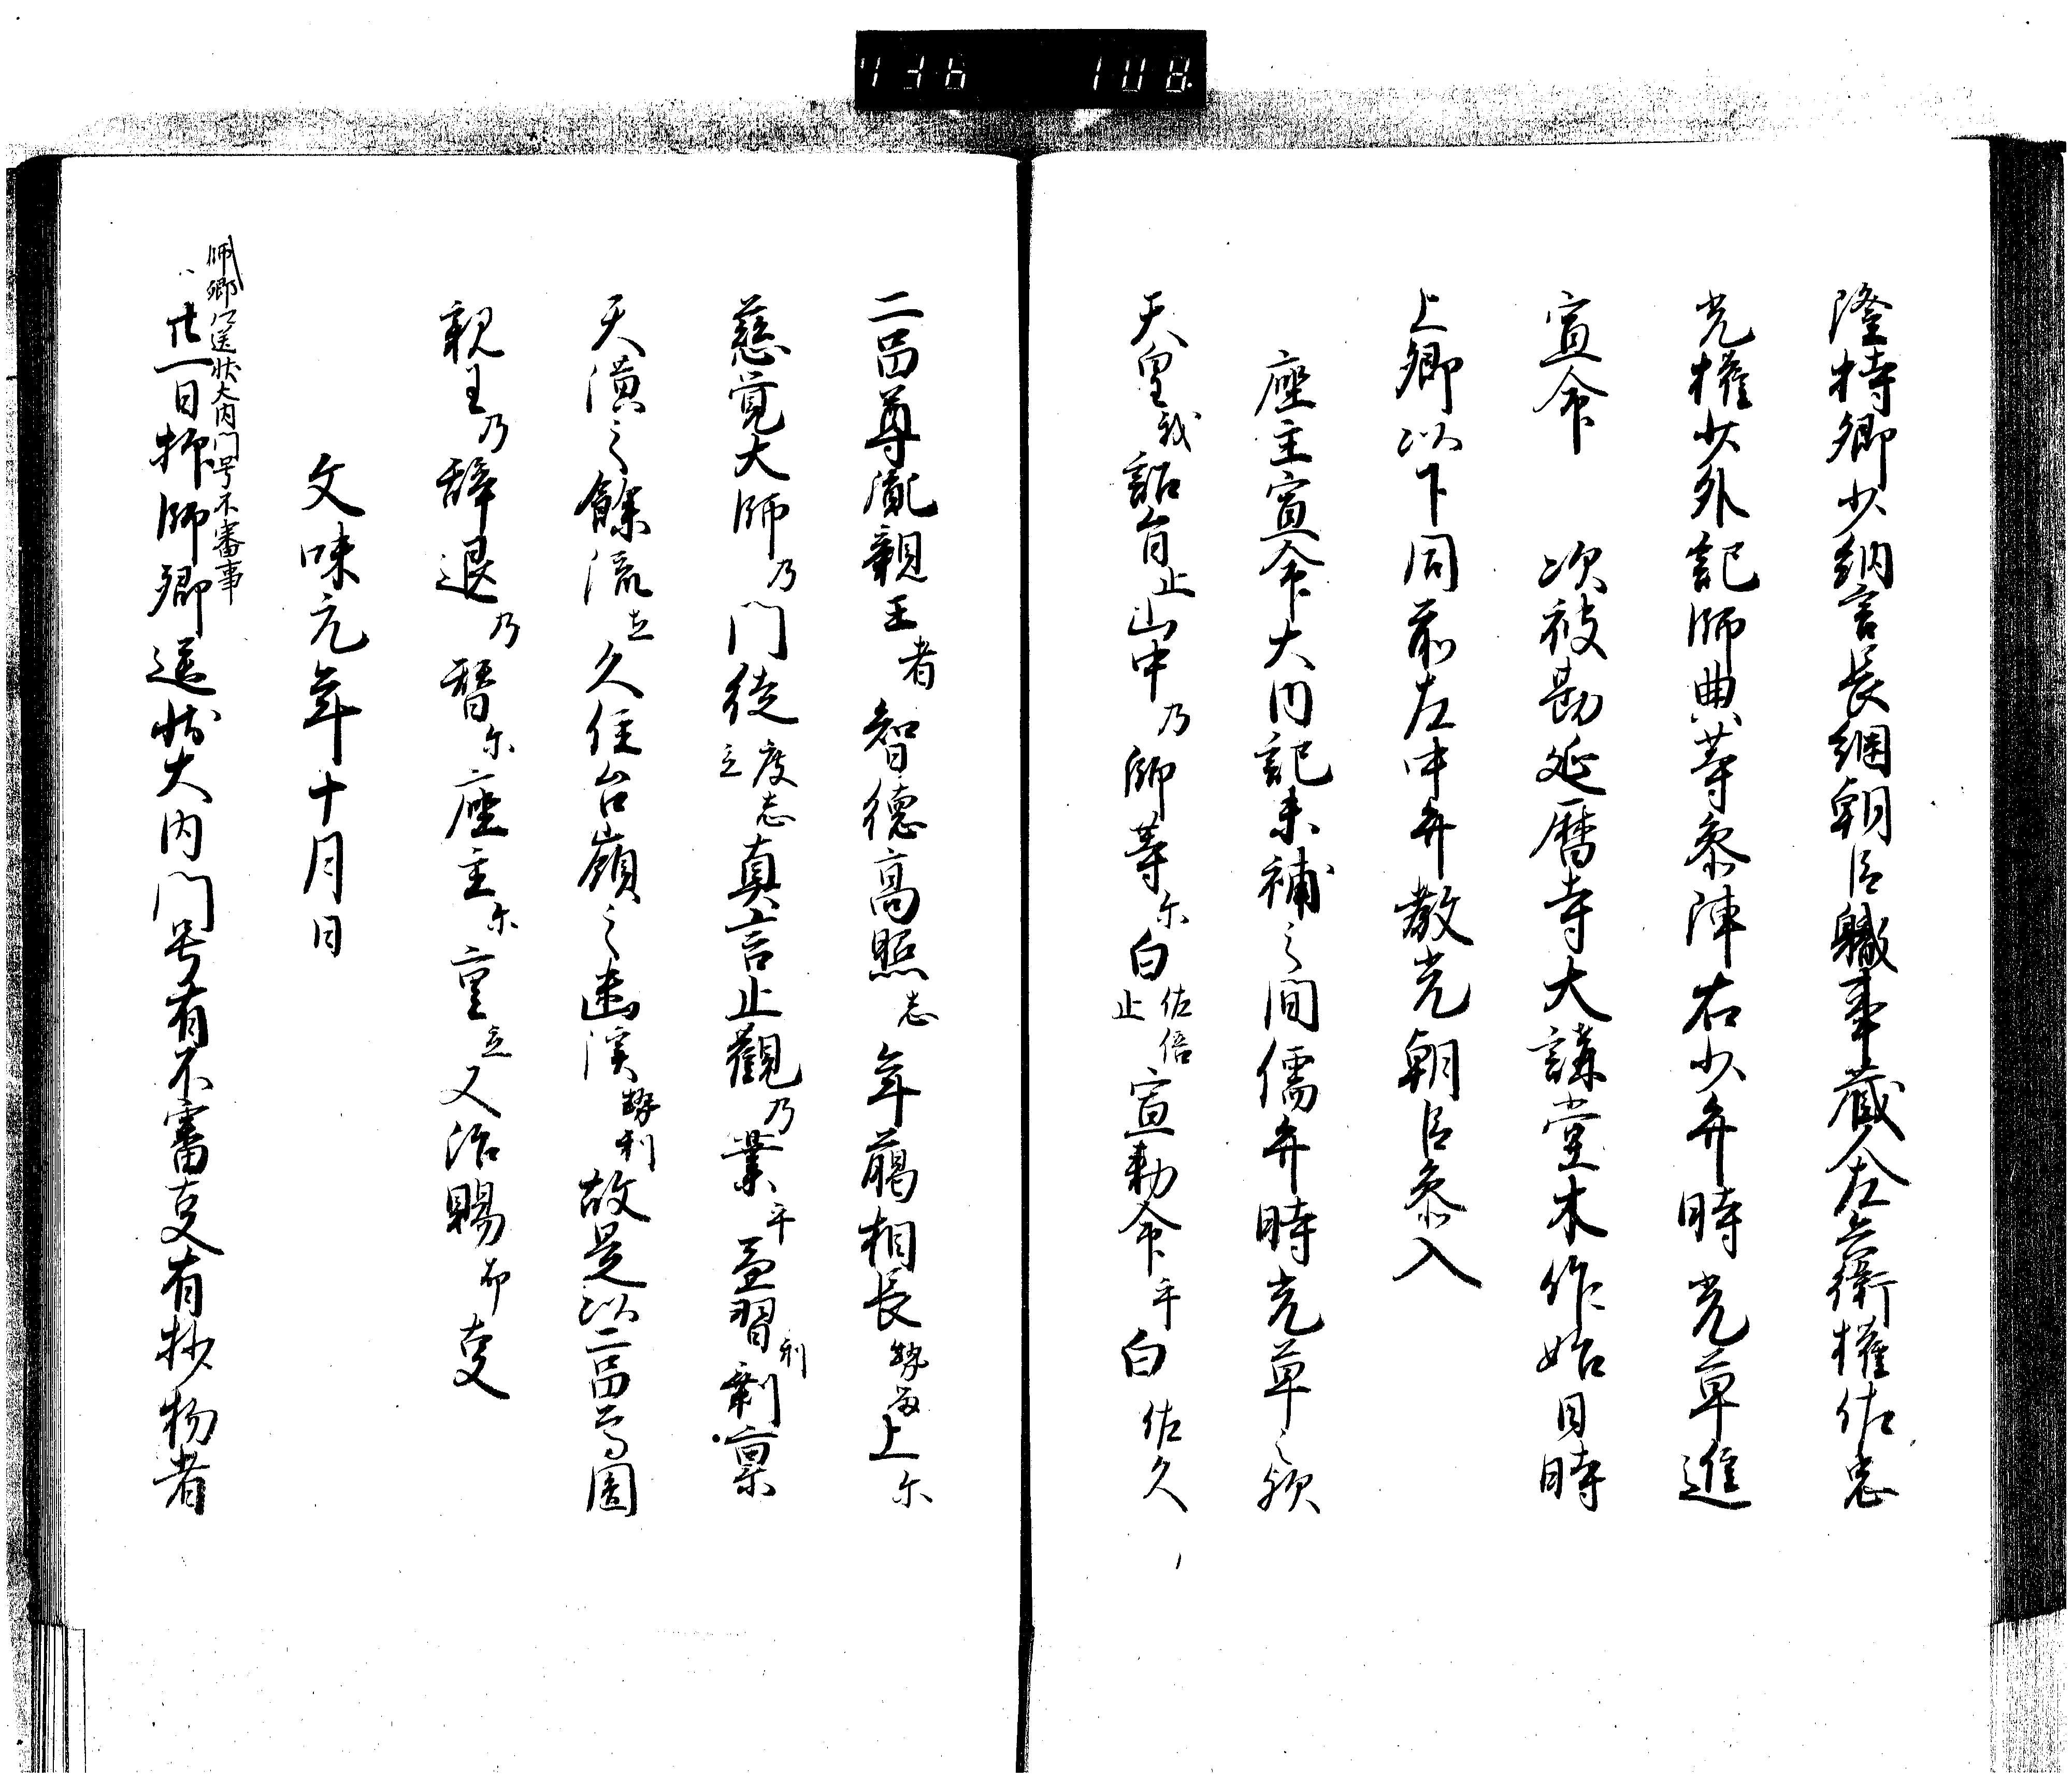 隆持卿少納言長綱朝臣職事蔵人左兵衛権佐忠
光権少外記師典等参陣右少弁時光草進
宣命　次被勘延暦寺大講堂木作始日時
上卿以下同前左中弁教光朝臣参入
座主宣命大内記未補之間儒弁時光草之欤
天皇我詔旨止山中乃師等尓白佐倍止宣勅命乎白佐久
二品尊胤親王者智徳高照志年﨟相長勢留上尓
慈覚大師乃門徒度志立真言止観乃業乎盈習利剰稟
天潢之餘流立久住台嶺之幽渓勢利故是以二品尊圓
親王乃辞退乃替尓座主尓重立又治賜布事
文和元年十月日
師卿江送状大内門号不審事
廿一日抑師卿送状大内門号有不審事有抄物者